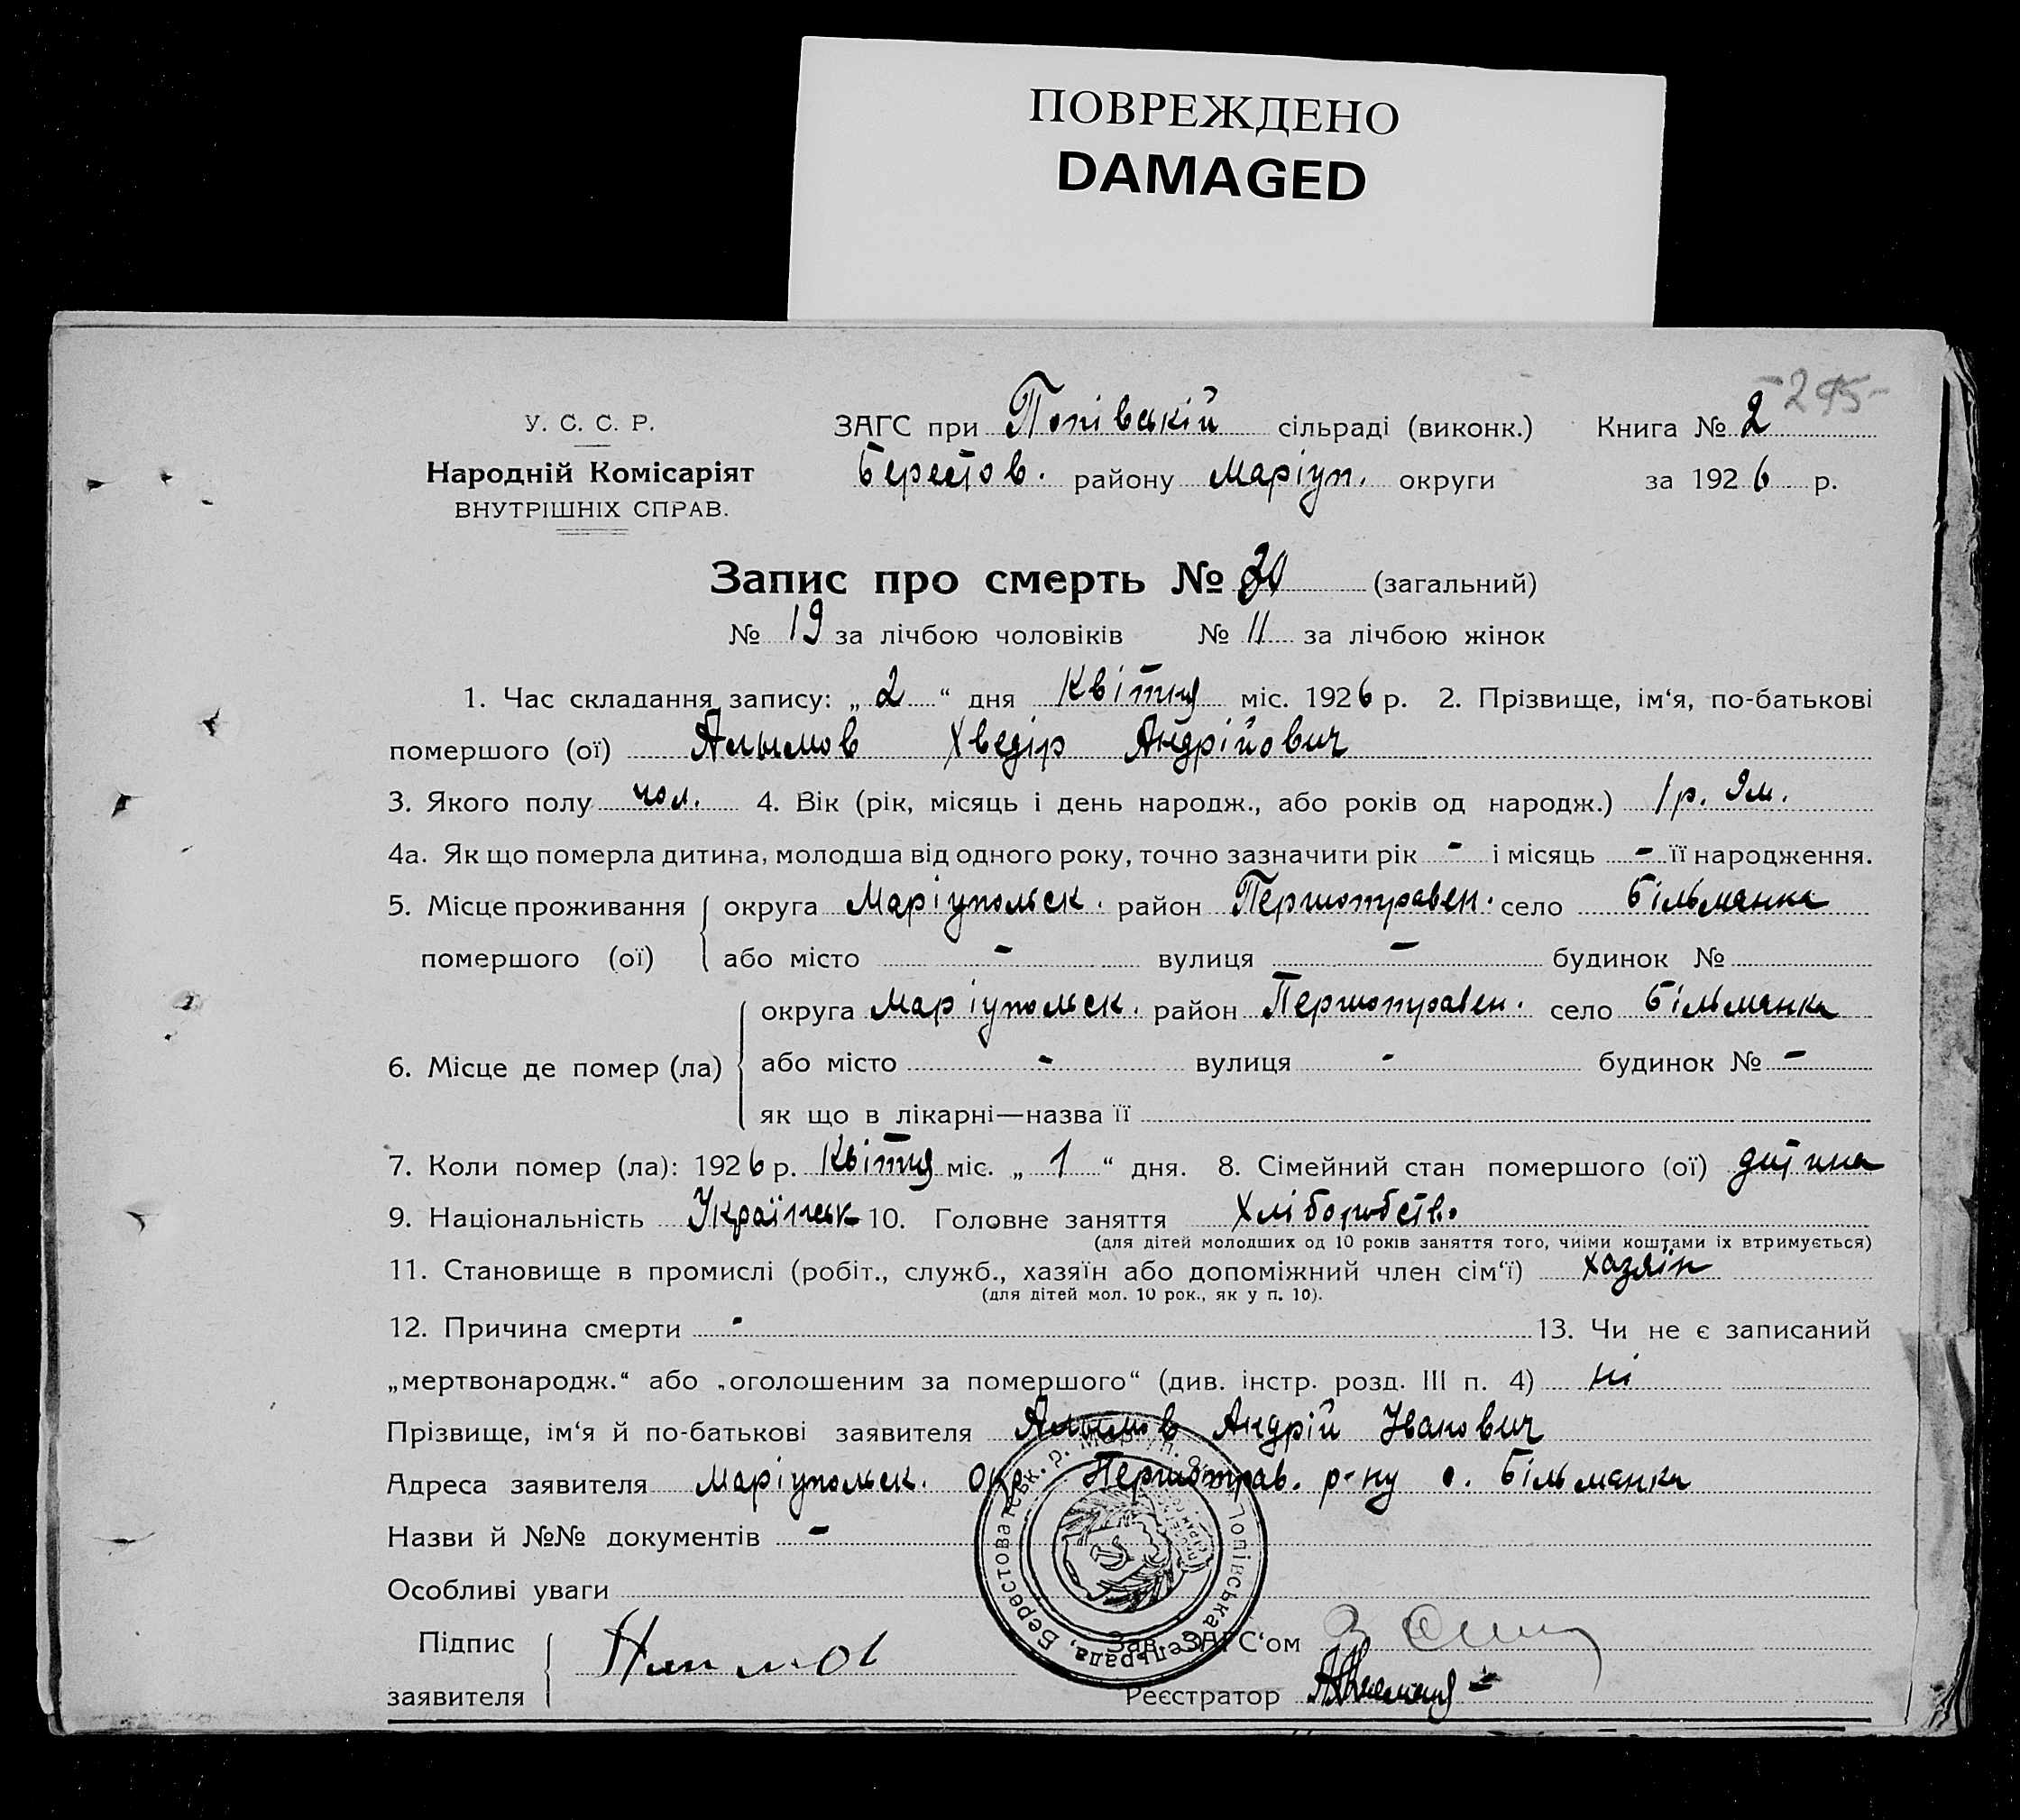 ПОВРЕЖДЕНО
DAMAGED
-295-
У. С. С. Р.
Народній Комісаріят
ВНУТРІШНІХ СПРАВ.
ЗАГС при Попівській сільраді (виконк.) Книга № 2
Берестов. району Маріуп. округи за 1926 р.
Запис про смерть № 30 (загальний)
№ 19 за лічбою чоловіків № 11 за лічбою жінок
1. Час складання запису: „2“ дня Квітня міс. 1926 р. 2. Прізвище, ім‘я, по-батькові
помершого (ої) Алымов Хведір Андрійович
3. Якого полу чол. 4. Вік (рік, місяць і день народж., або років од народж.) 1 р. 9 м.
4а. Як що померла дитина, молодша від одного року, точно зазначити рік - і місяць - її народження.
5. Місце проживання округа Маріупольск. район Першотравен. село Більманка
помершого (ої) або місто - вулиця - будинок №
округа Маріупольск. район Першотравен. село Більманка
6. Місце де помер (ла) або місто - вулиця - будинок № -
як що в лікарні—назва її
7. Коли помер (ла): 1926 р. Квітня міс. „1“ дня. 8. Сімейний стан помершого (ої) дитина
9. Національність Українськ 10. Головне заняття Хліборобство
(для дітей молодших од 10 років заняття того, чиїми коштами їх втримується)
11. Становище в промислі (робіт., служб., хазяїн або допоміжний член сім‘ї) хазяїн
(для дітей мол. 10 рок., як у п. 10).
12. Причина смерти - 13. Чи не є записаний
„мертвонародж.“ або „оголошеним за помершого“ (див. інстр. розд. III п. 4) ні
Прізвище, ім‘я й по-батькові заявителя Алымов Андрій Іванович
Адреса заявителя Маріупольск. окр. Першотрав. р-ну с. Більманка
Назви й №№ документів -
Особливі уваги
Підпис
заявителя
Зав. ЗАГС‘ом
Реєстратор
Попівська сельрада, Берестоватськ. р. Маріуп.